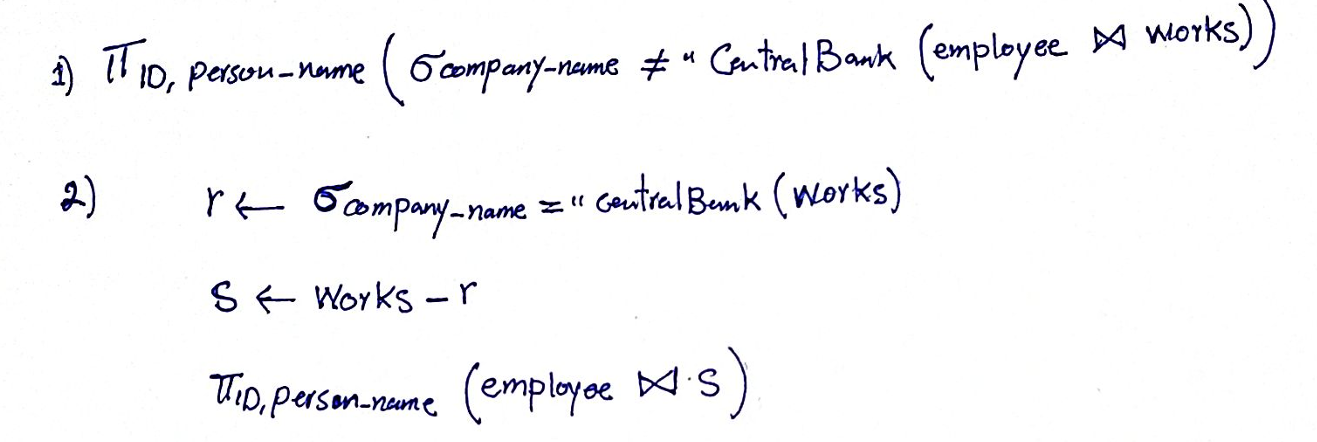 1) Π ID, person-name ( σ company-name ≠ " Central Bank (employee ⋈ works))
2) r ← σ company-name = " Central Bank (works)
S ← Works - r
Π ID, person-name (employee ⋈ S)